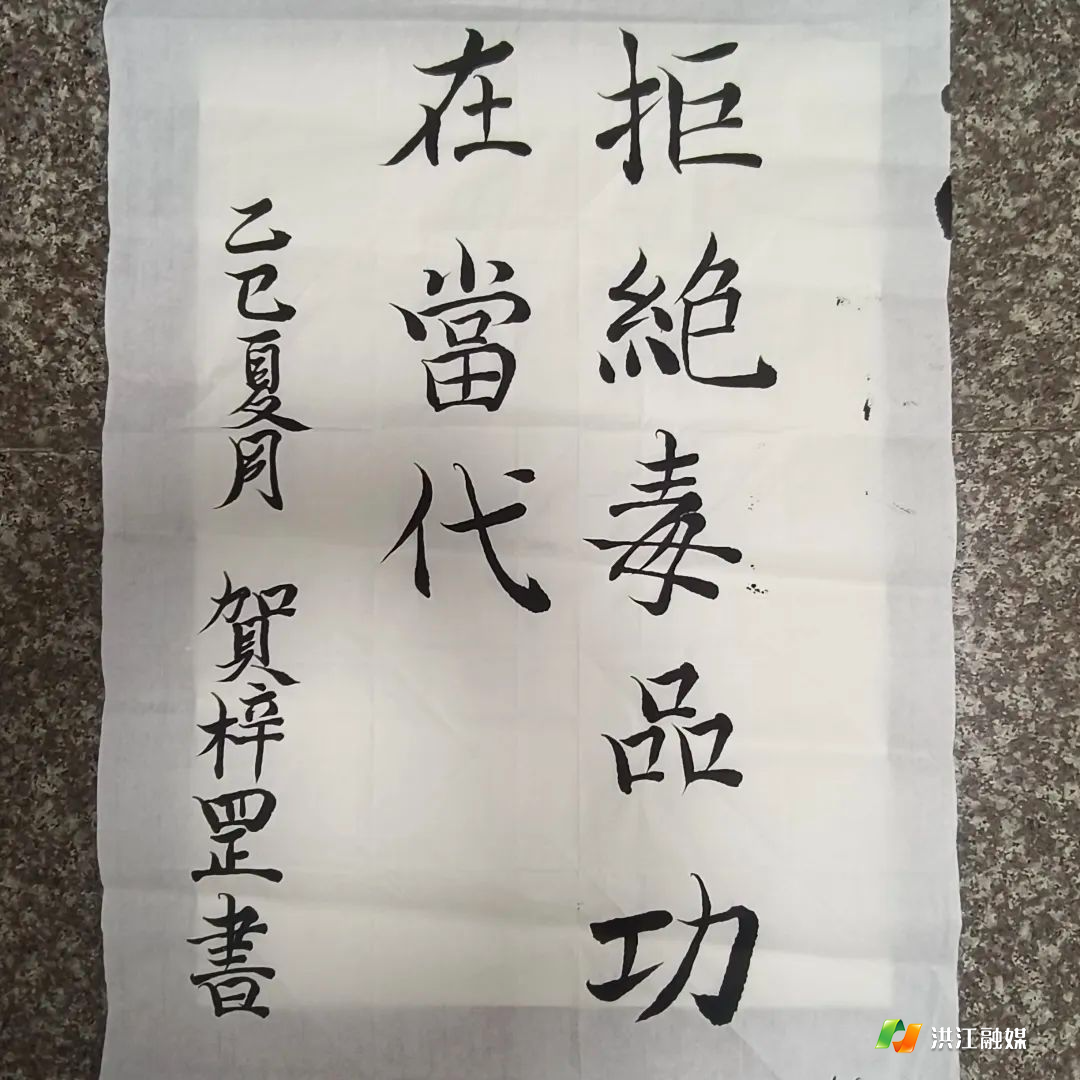 拒絶毒品功
在當代
乙巳夏月 賀梓罡書
洪江融媒